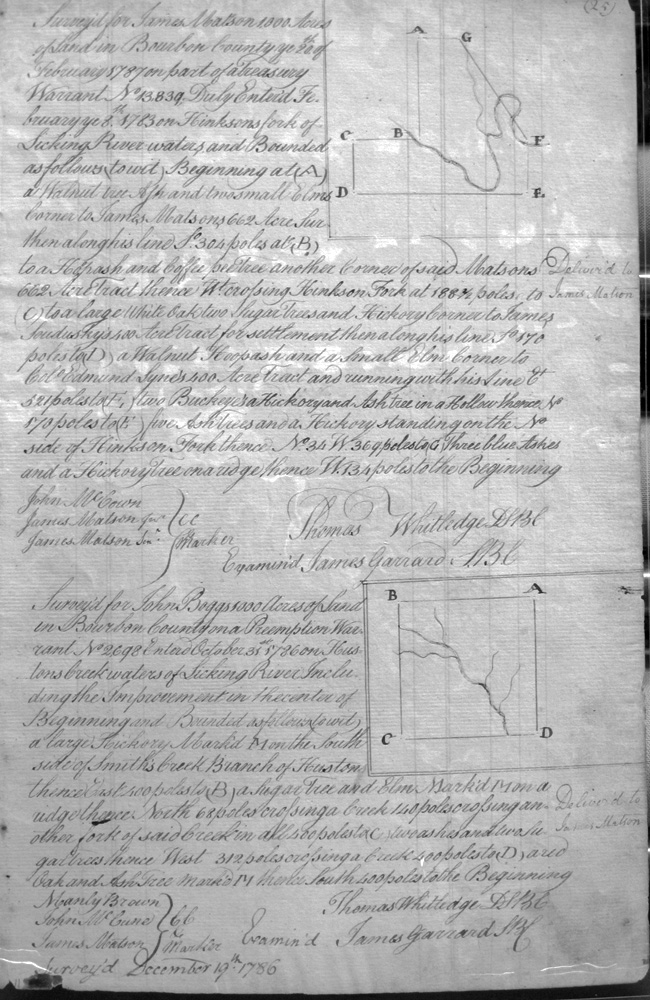 (25)
Survey'd for James Matson 1000 Acres
of Land in Bourbon County ye
February 1787 on part of a treasury
Warrant No 13839 Duly Enterd Fe-
bruary ye 8th 1783 on Hinksons fork of
Licking River waters and Bounded
as follows (towit) Beginning at (A)
a Walnut tree Ash and two small Elms
Corner to James Matsons 662 Acre Sur-
then along his line So 304 poles at (B)
to a Hopash and Coffee tree another Corner of said Matsons
662 Acre tract thence Wt crossing Hinkson Fork at 188 poles, to
(C) to a large White Oak two Sugar Trees and Hickory Corner to James
400 Acre tract for settlement then along his line So 170
poles to (D) a Walnut Hoopash and a Small Elm Corner to
Colo Edmund 400 Acre Tract and running with his Line Et
521 poles to E, two Buckeyes a Hickory and Ash tree in a Hollow thence No
170 poles to (F) five Ash Trees and a Hickory standing on the No
side of Hinkson Fork thence No 34 W. 369 poles to G Three blue Ashes
and a Hickory Tree on a ridge thence W. 134 poles to the Beginning
Deliver'd to
James Matson
John McCown
James Matson Junr
James Matson Senr
CC
Marker
Thomas Whitledge DSBC
Examin'd James Garrard SBC
A
G
C
B
F
D
E
Survey'd for John Boggs 1000 Acres of Land
in Bourbon County on a Preemption War-
rant No 2698 Enterd October 31st 1786 on Hus-
tons Creek waters of Licking River Inclu-
ding the Improvement in the center of
Beginning and Bounded as follows (towit)
a large Hickory Mark'd M on the South
side of Smiths Creek Branch of Hustons
thence East 400 poles to (B) a Sugar Tree and Elm Mark'd M on a
ridge thence North 62 poles crossing a Creek 140 poles crossing an-
other fork of said Creek in all 400 poles to (C) two ashes and two Su-
gar trees thence West 312 poles crossing a Creek 400 poles to (D) a red
Oak and Ash Tree mark'd M thence South 400 poles to the Beginning
Deliver'd to
James Matson
Manly Brown
John McCune
James Matson
CC
Marker
Thomas Whitledge DSBC
Examin'd James Garrard SBC
Survey'd December 19th 1786
B
A
C
D